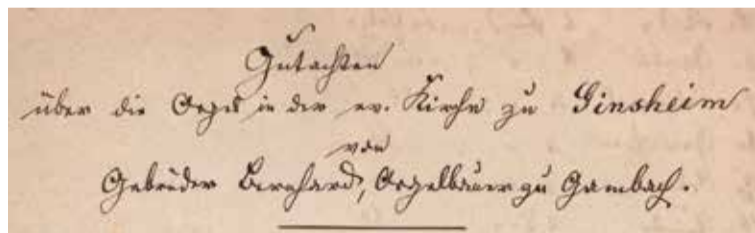 Gutachten
über die Orgel in der ev. Kirche zu Ginsheim
von
Gebrüder Bernhard, Orgelbauer zu Gambach.